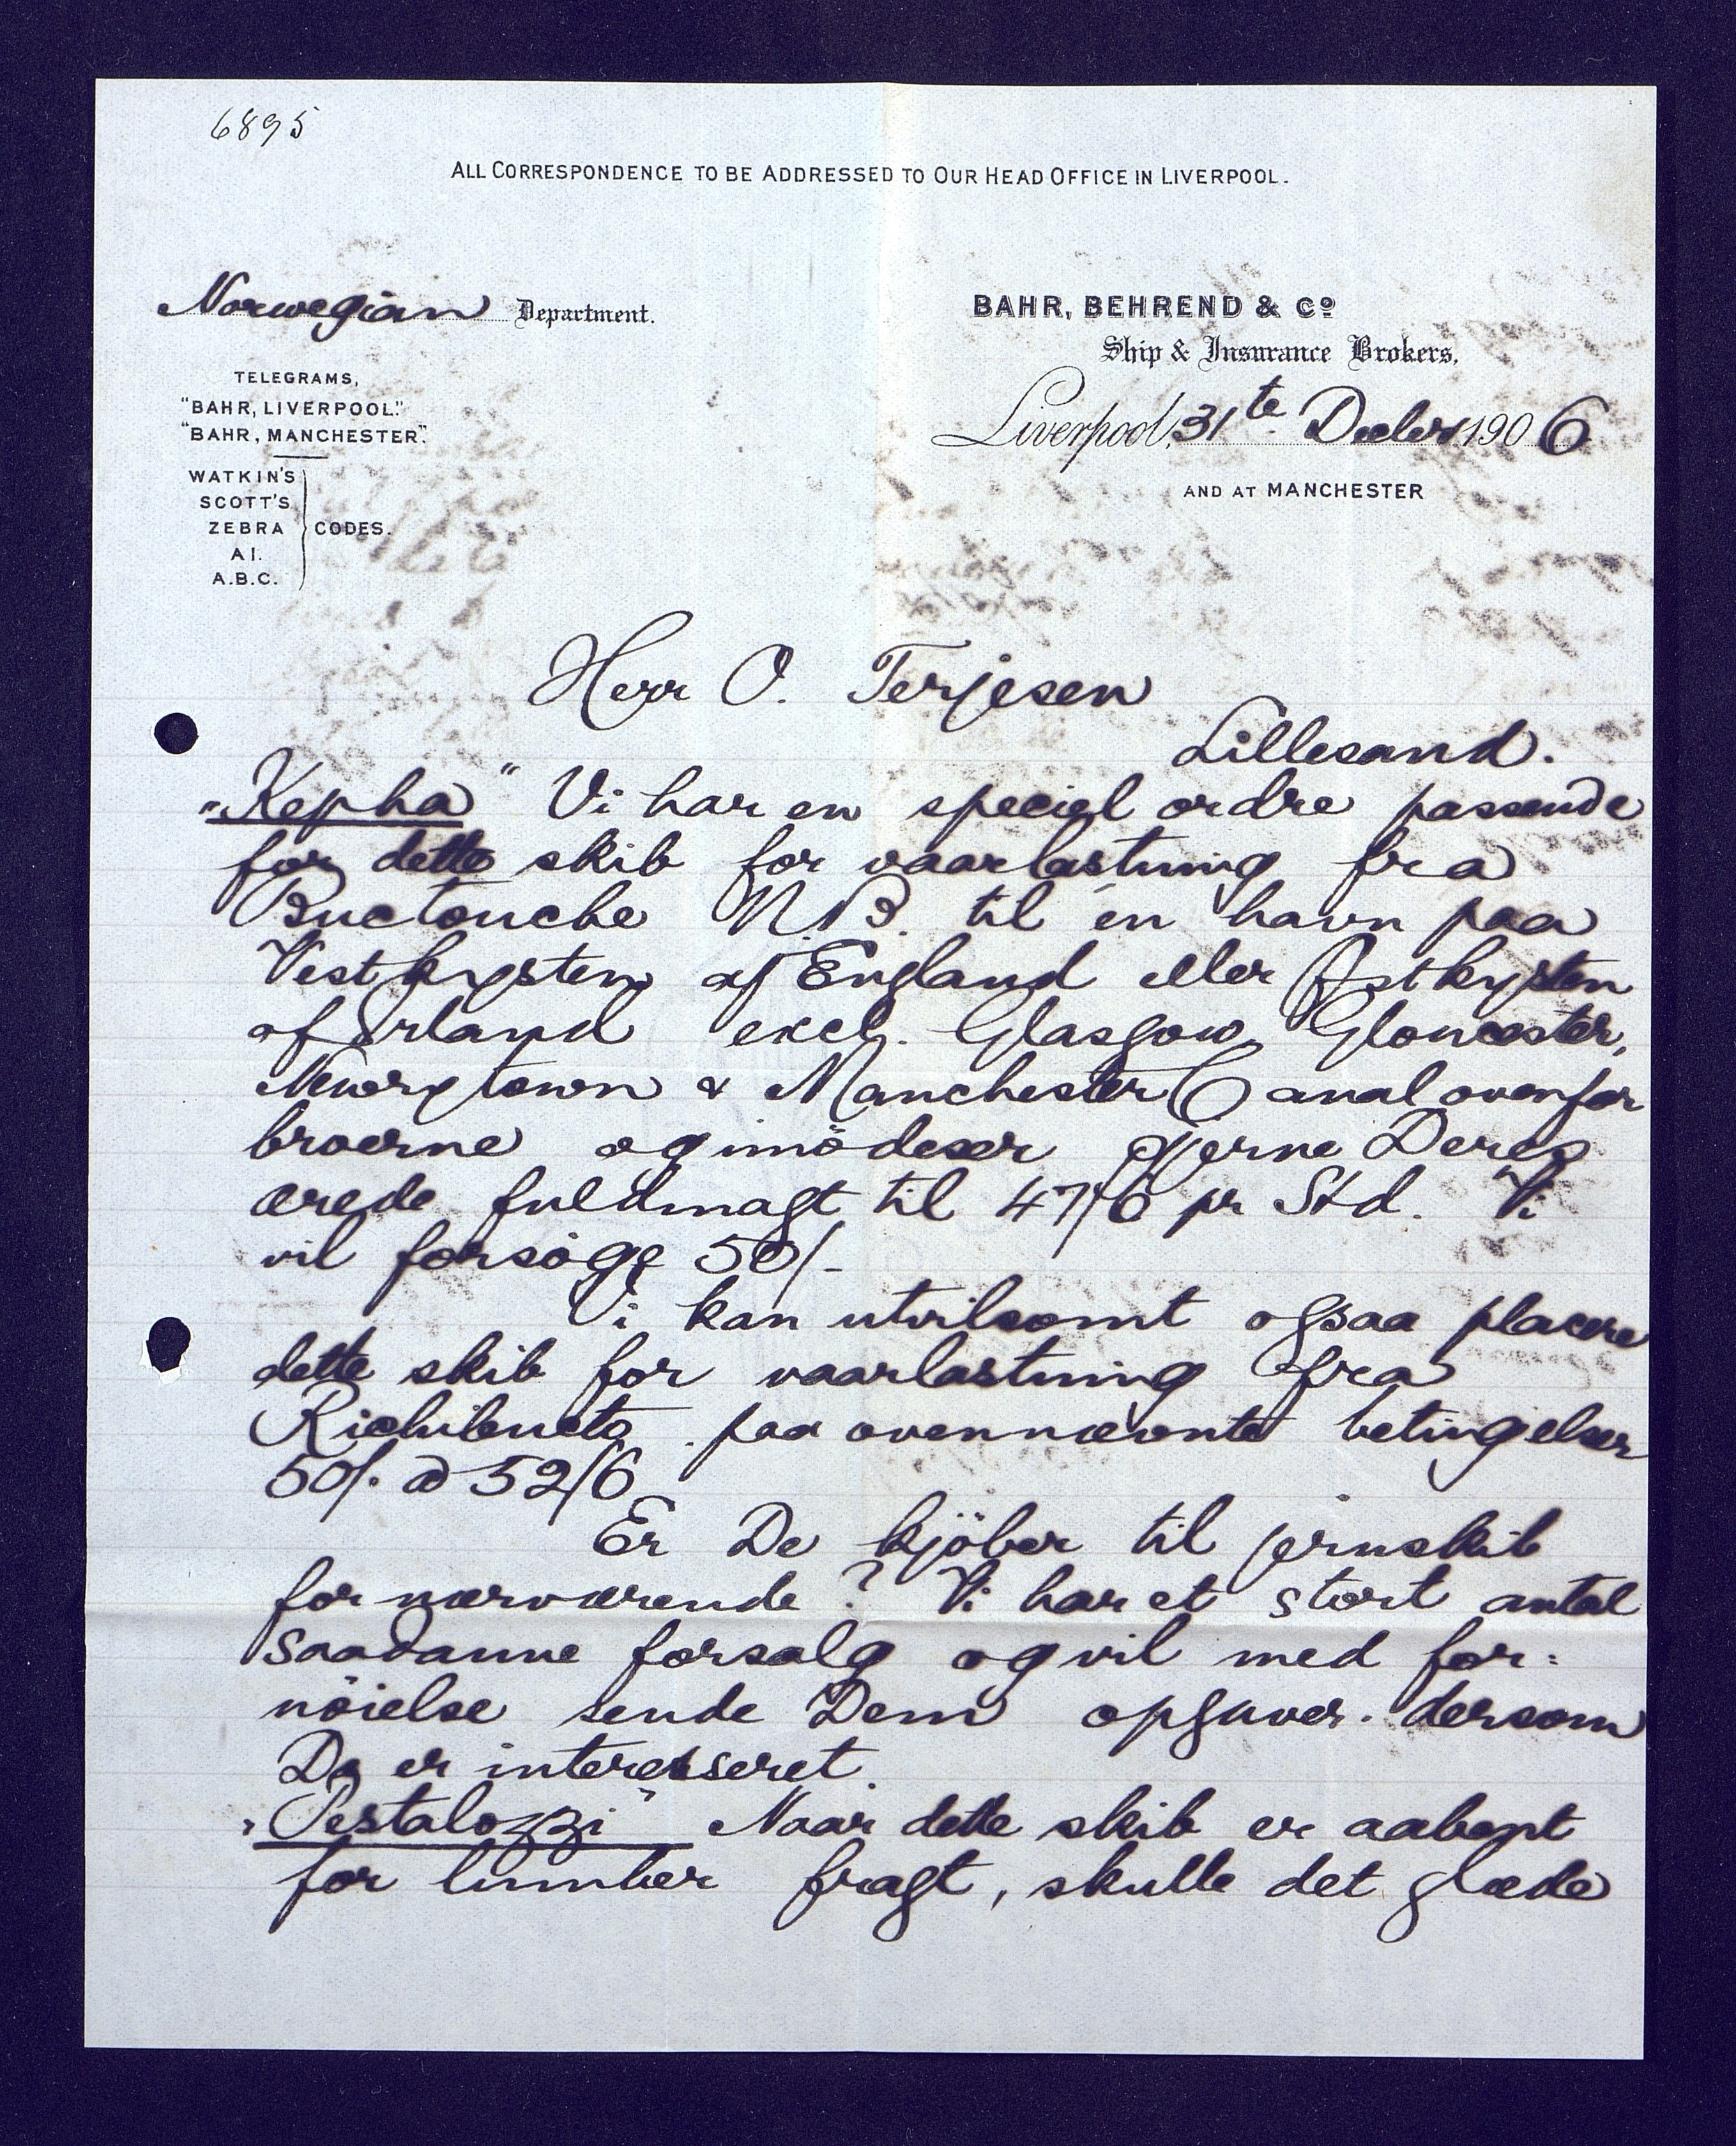 6895
ALL CORRESPONDENCE TO BE ADDRESSED TO OUR HEAD OFFICE IN LIVERPOOL.
Norwegian Department.
TELEGRAMS,
"BAHR, LIVERPOOL."
"BAHR, MANCHESTER".
WATKIN'S
SCOTT'S
ZEBRA CODES.
A I.
A.B.C.
BAHR, BEHREND & Co
Ship & Insurance Brokers.
Liverpool, 31te Decbr 1906
AND AT MANCHESTER
Herr O. Terjesen
Lillesand.
"Kepha" Vi har en speciel ordre passende
for dette skib for vaarlastning fra
Buctouche N.B. til en havn paa
Vestkysten af England eller Östkysten
af Irland excl. Glasgow, Gloucester,
Newrytown & Manchester Canal ovenfor
broerne og imödeser gjerne Deres
ærede fuldmagt til 47/6 pr Std. Vi
vil forsöge 50/-
Vi kan utvilsomt ogsaa placere
dette skib for vaarlastning fra
Richibucto paa ovennævnte betingelser
50/. @ 52/6
Er De kjöber til jernskib
for nærværende? Vi har et stort antal
saadanne forsalg og vil med for-
nöielse sende Dem opgaver dersom
De er interesseret.
"Pestalozzi" Naar dette skib er aabent
for lumber fragt, skulle det glæde